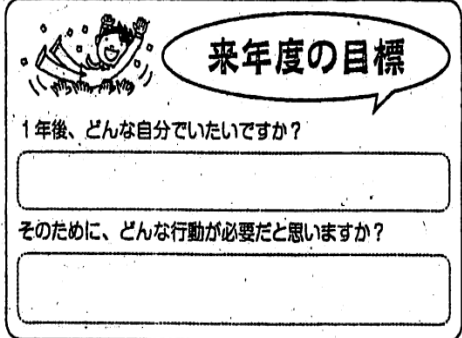 来年度の目標
1年後、どんな自分でいたいですか？
そのために、どんな行動が必要だと思いますか？